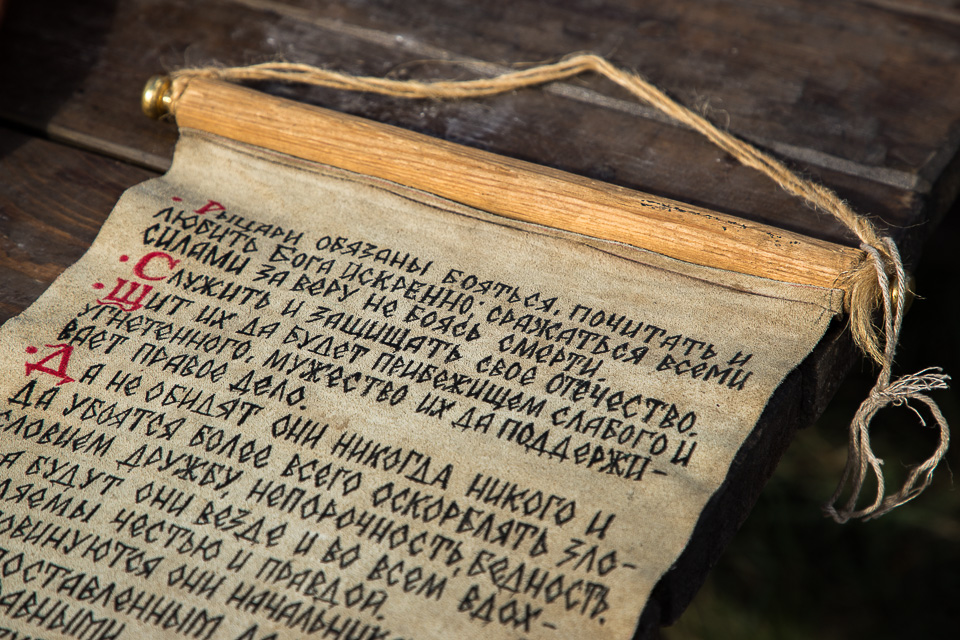 · Рыцари обязаны бояться, почитать и
любить Бога искренно, сражаться всеми
силами за веру не боясь смерти
· Служить и защищать свое отечество.
· Щит их да будет прибежищем слабого и
угнетенного. мужество их да поддержи-
вает правое дело.
· Да не обидят они никогда никого и
да убоятся более всего оскорблять зло-
словием дружбу, непорочность, бедность.
а будут они везде и во всем вдох-
ляемы честью и правдой.
овинуются они начальник
оставленным
авными